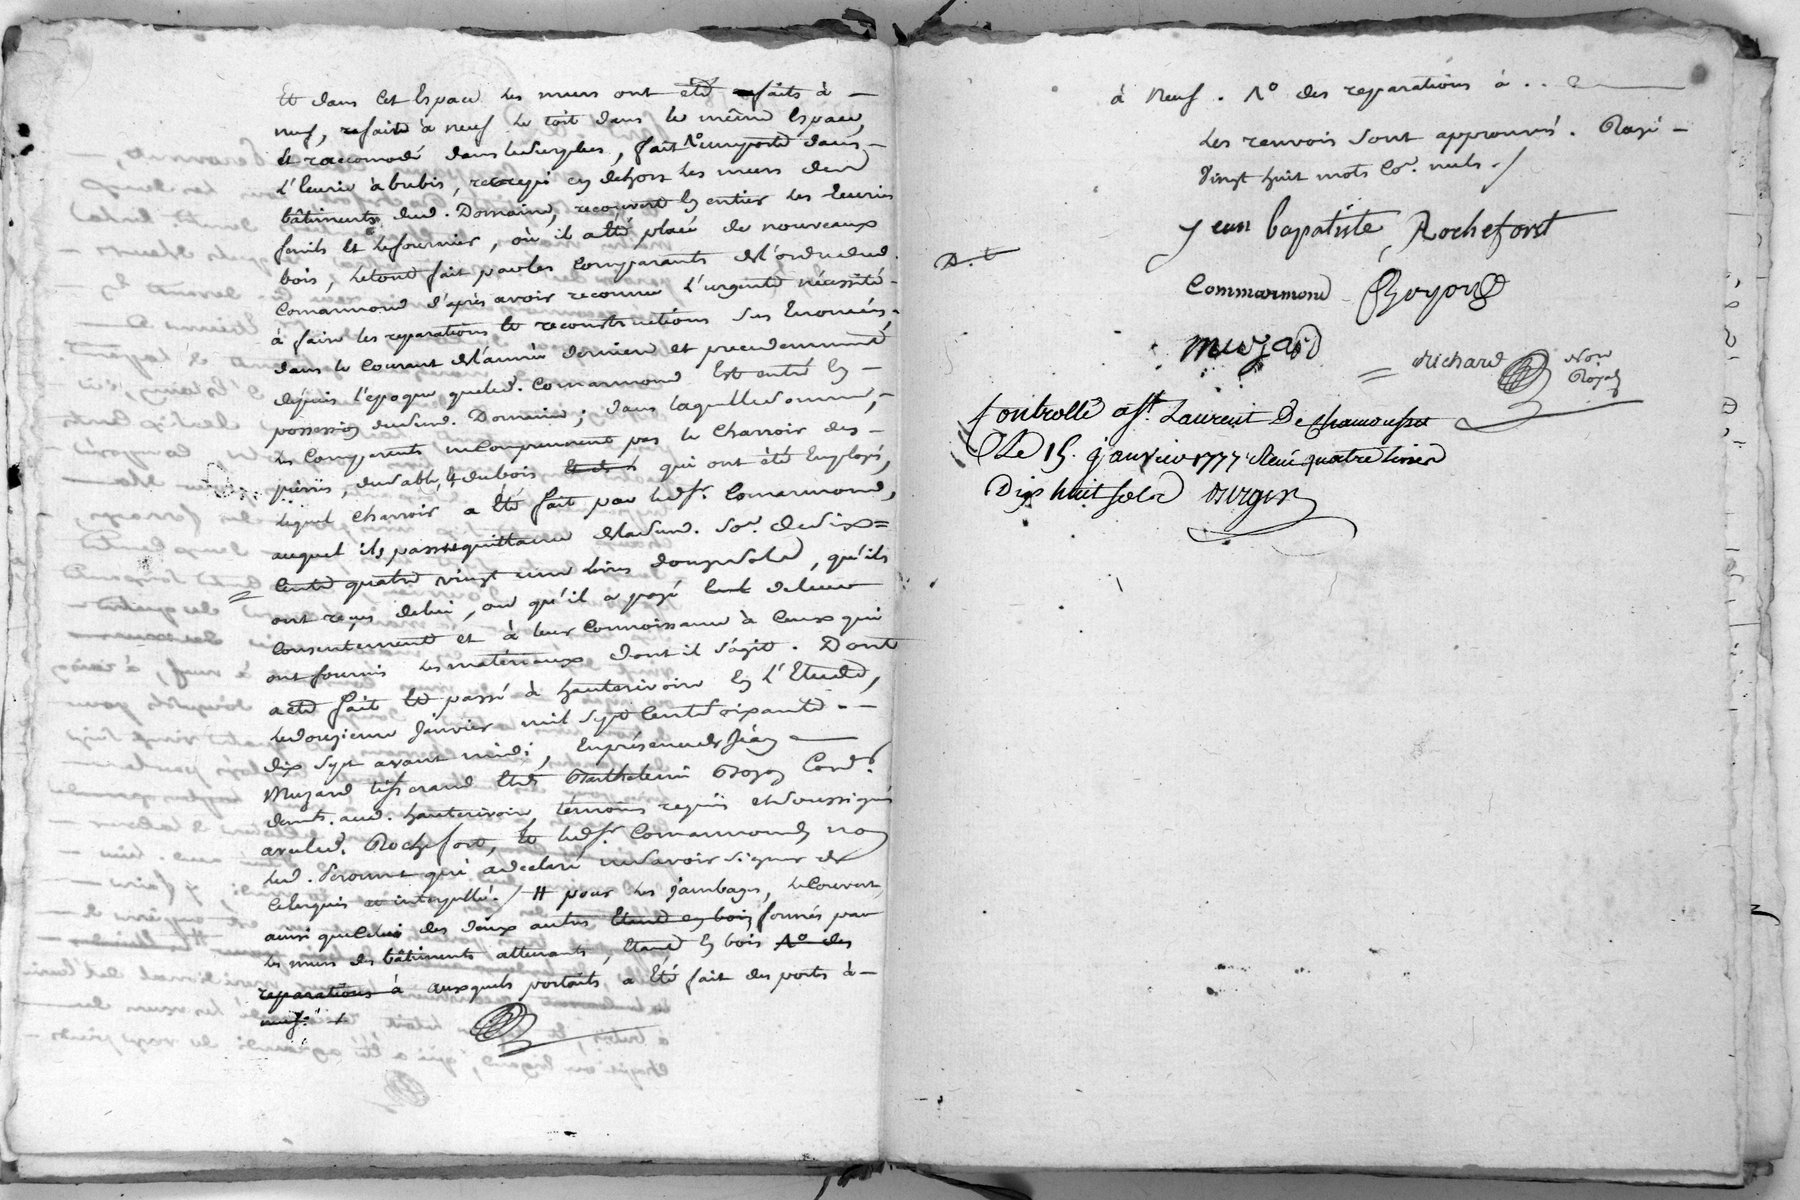 Et dans cet Espace les murs ont été refaits à —
neuf, refaite à neuf le toit dans le même Espace,
Et racomodé dans le surplus, fait un posté dans —
L'Ecurie à brebis, recrepi en dehors les murs des
bâtiments dud. Domaine, recouvert en entier les Ecuries
fenils Et le fournier, où il a été placé de nouveaux
bois, le tout fait par les comparants de l'ordre dud.
Comarmond d'après avoir reconnu l'urgente nécessité
à faire les reparations et reconstructions sus Enoncées,
dans le courant de l'année derniere et precedemment
depuis l'epoque que led. Comarmond Est entré en —
possession du susd. Domaine; dans laquelle somme, —
les comparants ne comprennent pas le charroir des —
pierres, du sable, & du bois qui ont été Employés,
lequel charroir a été fait par led. sr. Comarmond,
auquel ils passent quittance de la susd. so.e de six =
Cents quatre vingt une livres douze sols, qu'ils
ont reçus de lui, ou qu'il a payé de leur
consentement et à leur connoissance à ceux qui
ont fourni les matériaux dont il s'agit. Dont
acte fait Et passé à hauterivoire En l'Etude,
le douzieme Janvier mil sept cents soixante —
dix sept avant midi, En présence de Jean —
Muzard tisserand Et de Barthelemi Bojon Cord.r
demts. aud. hauterivoire, temoins requis et soussignés
avec led. Rochefort, Et led. sr. Comarmond, non
led. qui a declaré ne savoir signer de
ce enquis et interpellé. / # pour les jambages, le Couvert,
ainsi que celui des deux autres Etant en bois formés par
les murs des bâtiments attenants, Etant En bois No des
reparations à auxquels portails a Eté fait des ports à —
neuf. +
à neuf. No des reparations à ..
Les renvois sont approuvés. Rayé —
Vingt huit mots co. nuls. /
jean baptiste Rochefort
D. t
Commarmond Boyond
muzard
Richard Nore
Royal
Controllé a St. Laurent De chamousset
Le 15. janvier 1777 Reçu quatre livres
Dix huit sols